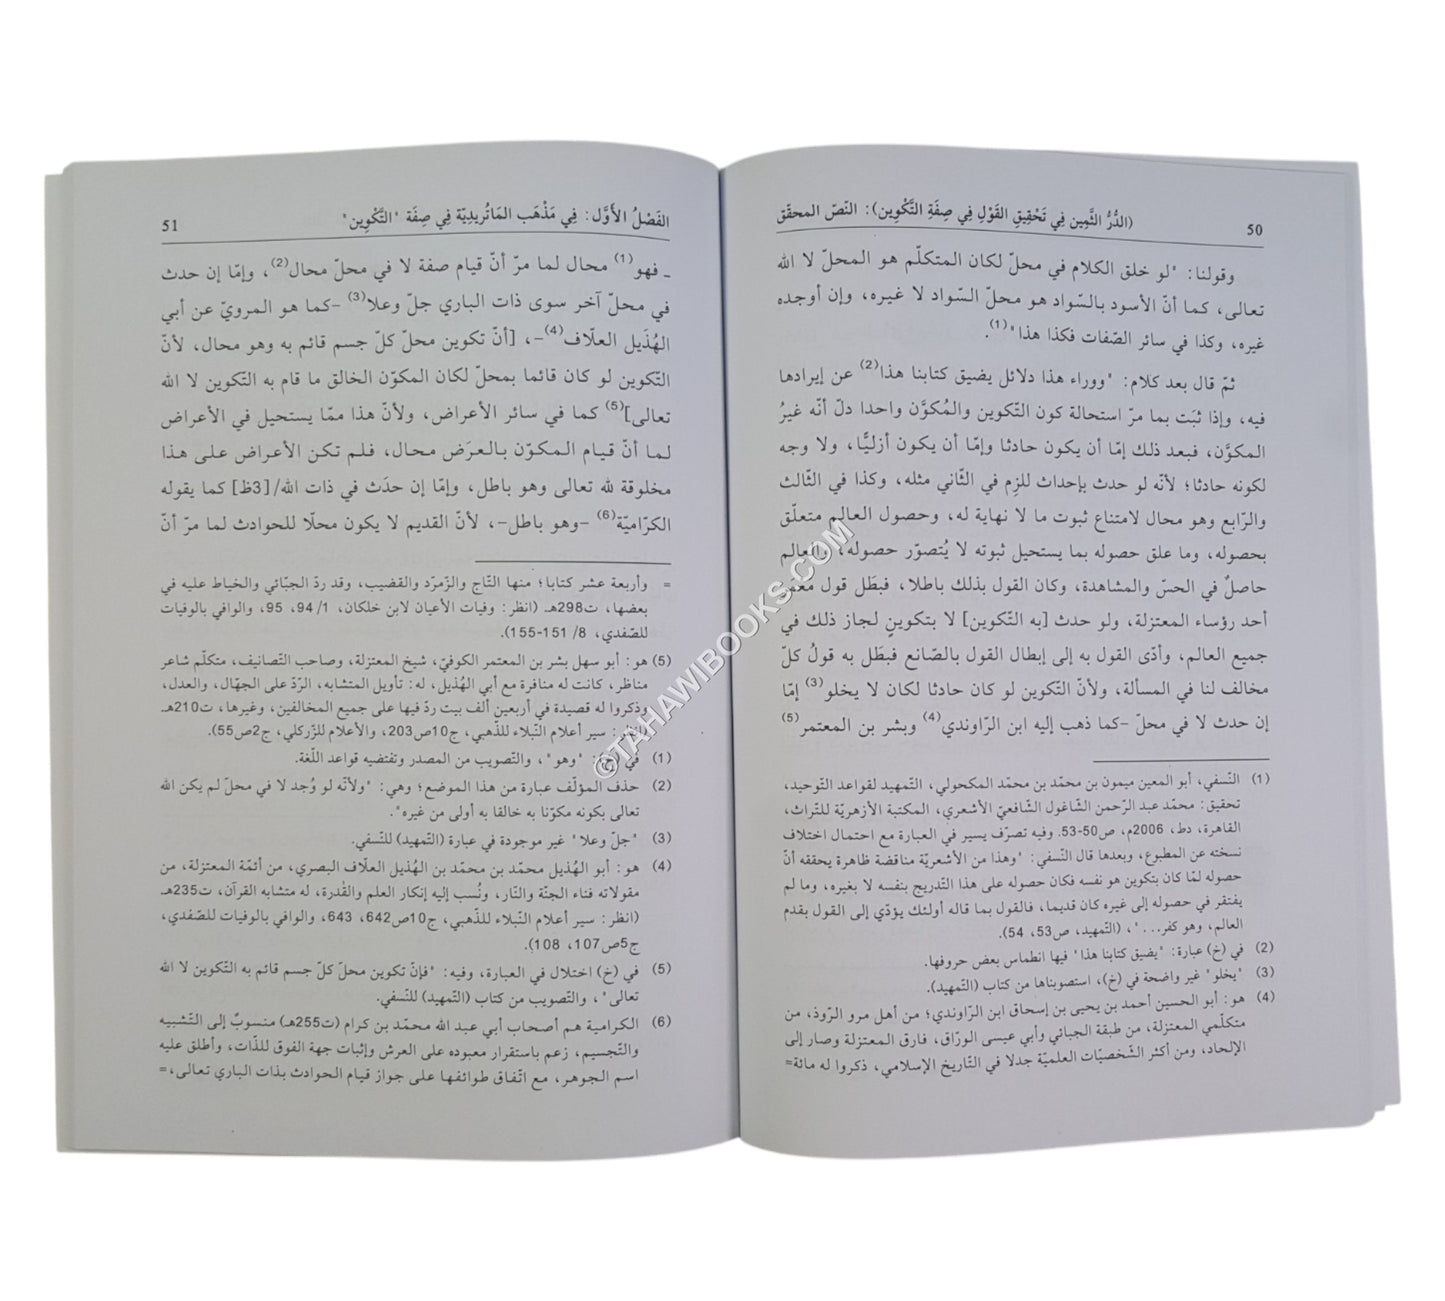 50 (الدُّرُّ الثَّمِين فِي تَحْقِيقِ القَوْلِ فِي صِفَةِ التَّكْوِين): النّصّ المحقّق
وقولنا: "لو خلق الكلام في محلّ لكان المتكلّم هو المحلّ لا الله
تعالى، كما أنّ الأسود بالسّواد هو محلّ السّواد لا غيره، وإن أوجده
غيره، وكذا في سائر الصّفات فكذا هذا"(1).
ثمّ قال بعد كلام: "ووراء هذا دلائل يضيق كتابنا هذا(2) عن إيرادها
فيه، وإذا ثبَت بما مرّ استحالة كون التّكوين والمُكوَّن واحدا دلّ أنّه غيرُ
المكوَّن، فبعد ذلك إمّا أن يكون حادثا وإمّا أن يكون أزليًّا، ولا وجه
لكونه حادثا؛ لأنّه لو حدث بإحداث للزِم في الثّاني مثله، وكذا في الثّالث
والرّابع وهو محال لامتناع ثبوت ما لا نهاية له، وحصول العالم متعلّق
بحصوله، وما علق حصوله بما يستحيل ثبوته لا يُتصوّر حصوله، والعالم
حاصلٌ في الحسّ والمشاهدة، وكان القول بذلك باطلا، فبطَل قول معمّر
أحد رؤساء المعتزلة، ولو حدث [به التّكوين] لا بتكوينٍ لجاز ذلك في
جميع العالم، وأدّى القول به إلى إبطال القول بالصّانع فبطَل به قولُ كلّ
مخالف لنا في المسألة، ولأنّ التّكوين لو كان حادثا لكان لا يخلو(3) إمّا
إن حدث لا في محلّ -كما ذهب إليه ابن الرّاوندي(4) وبشر بن المعتمر(5)
(1) النّسفي، أبو المعين ميمون بن محمّد بن محمّد المكحولي، التّمهيد لقواعد التّوحيد،
تحقيق: محمّد عبد الرّحمن الشّاغول الشّافعيّ الأشعري، المكتبة الأزهريّة للتّراث،
القاهرة، دط، 2006م، ص50-53. وفيه تصرّف يسير في العبارة مع احتمال اختلاف
نسخته عن المطبوع، وبعدها قال النّسفي: "وهذا من الأشعريّة مناقضة ظاهرة يحققه أنّ
حصوله لمّا كان بتكوين هو نفسه فكان حصوله على هذا التّدريج بنفسه لا بغيره، وما لم
يفتقر في حصوله إلى غيره كان قديما، فالقول بما قاله أولئك يؤدّي إلى القول بقدم
العالم، وهو كفر..."، (التّمهيد، ص53، 54).
(2) في (خ) عبارة: "يضيق كتابنا هذا" فيها انطماس بعض حروفها.
(3) "يخلو" غير واضحة في (خ)، استصوبناها من كتاب (التّمهيد).
(4) هو: أبو الحسين أحمد بن يحيى بن إسحاق ابن الرّاوندي؛ من أهل مرو الرّوذ، من
متكلّمي المعتزلة، من طبقة الجبائي وأبي عيسى الورّاق، فارق المعتزلة وصار إلى
الإلحاد، ومن أكثر الشّخصيّات العلميّة جدلا في التّاريخ الإسلامي، ذكروا له مائة=
الفَصْلُ الأَوَّل: فِي مَذْهَب المَاتُرِيدِيّة فِي صِفَة "التَّكْوِين" 51
ـ فهو(1) محال لما مرّ أنّ قيام صفة لا في محلّ محال(2)، وإمّا إن حدث
في محلّ آخر سوى ذات الباري جلّ وعلا(3) -كما هو المرويّ عن أبي
الهُذَيل العلّاف(4)-، [أنّ تكوين محلّ كلّ جسم قائم به وهو محال، لأنّ
التّكوين لو كان قائما بمحلّ لكان المكوّن الخالق ما قام به التّكوين لا الله
تعالى](5) كما في سائر الأعراض، ولأنّ هذا ممّا يستحيل في الأعراض
لما أنّ قيام المكوّن بالعرَض محال، فلم تكن الأعراض على هذا
مخلوقة لله تعالى وهو باطل، وإمّا إن حدَث في ذات الله/[3ظ] كما يقوله
الكرّاميّة(6) -وهو باطل-، لأنّ القديم لا يكون محلّا للحوادث لما مرّ أنّ
= وأربعة عشر كتابا؛ منها التّاج والزّمرّد والقضيب، وقد ردّ الجبّائي والخياط عليه في
بعضها، ت298هـ. (انظر: وفيات الأعيان لابن خلكان، 1/ 94، 95، والوافي بالوفيات
للصّفدي، 8/ 151-155).
(5) هو: أبو سهل بشر بن المعتمر الكوفيّ، شيخ المعتزلة، وصاحب التّصانيف، متكلّم شاعر
مناظر، كانت له منافرة مع أبي الهُذيل، له: تأويل المتشابه، الرّدّ على الجهّال، والعدل،
وذكروا له قصيدة في أربعين ألف بيت ردّ فيها على جميع المخالفين، وغيرها، ت210هـ.
(انظر: سير أعلام النّبلاء للذّهبي، ج10ص203، والأعلام للزّركلي، ج2ص55).
(1) في (خ): "وهو"، والتّصويب من المصدر وتقتضيه قواعد اللّغة.
(2) حذف المؤلّف عبارة من هذا الموضع؛ وهي: "ولأنّه لو وُجد لا في محلّ لم يكن الله
تعالى بكونه مكوّنا به خالقا به أولى من غيره".
(3) "جلّ وعلا" غير موجودة في عبارة (التّمهيد) للنّسفي.
(4) هو: أبو الهُذيل محمّد بن محمّد بن الهُذيل العلّاف البصري، من أئمّة المعتزلة، من
مقولاته فناء الجنّة والنّار، ونُسب إليه إنكار العلم والقُدرة، له متشابه القرآن، ت235هـ.
(انظر: سير أعلام النّبلاء للذّهبي، ج10ص642، 643، والوافي بالوفيات للصّفدي،
ج5ص107، 108).
(5) في (خ) اختلال في العبارة، وفيه: "فإنّ تكوين محلّ كلّ جسم قائم به التّكوين لا الله
تعالى"، والتّصويب من كتاب (التّمهيد) للنّسفي.
(6) الكرامية هم أصحاب أبي عبد الله محمّد بن كرام (ت255هـ) منسوبٌ إلى التّشبيه
والتّجسيم، زعم باستقرار معبوده على العرش وإثبات جهة الفوق للذّات، وأطلق عليه
اسم الجوهر، مع اتّفاق طوائفها على جواز قيام الحوادث بذات الباري تعالى،=
©TAHAWIBOOKS.COM